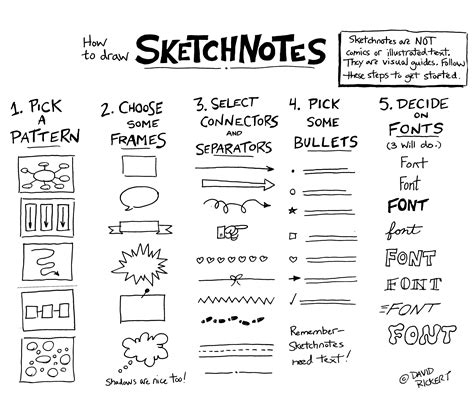 How
to draw
SKETCHNOTES
Sketchnotes are NOT
comics or illustrated text.
They are visual guides. Follow
these steps to get started.
1. PICK
A
PATTERN
2. CHOOSE
SOME
FRAMES
Shadows are nice too!
3. SELECT
CONNECTORS
AND
SEPARATORS
4. PICK
SOME
BULLETS
Remember-
Sketchnotes
need text!
5. DECIDE
ON
FONTS
(3 Will do.)
Font
Font
FONT
font
FONT
FONT
FONT
FONT
© DAVID
RICKERT